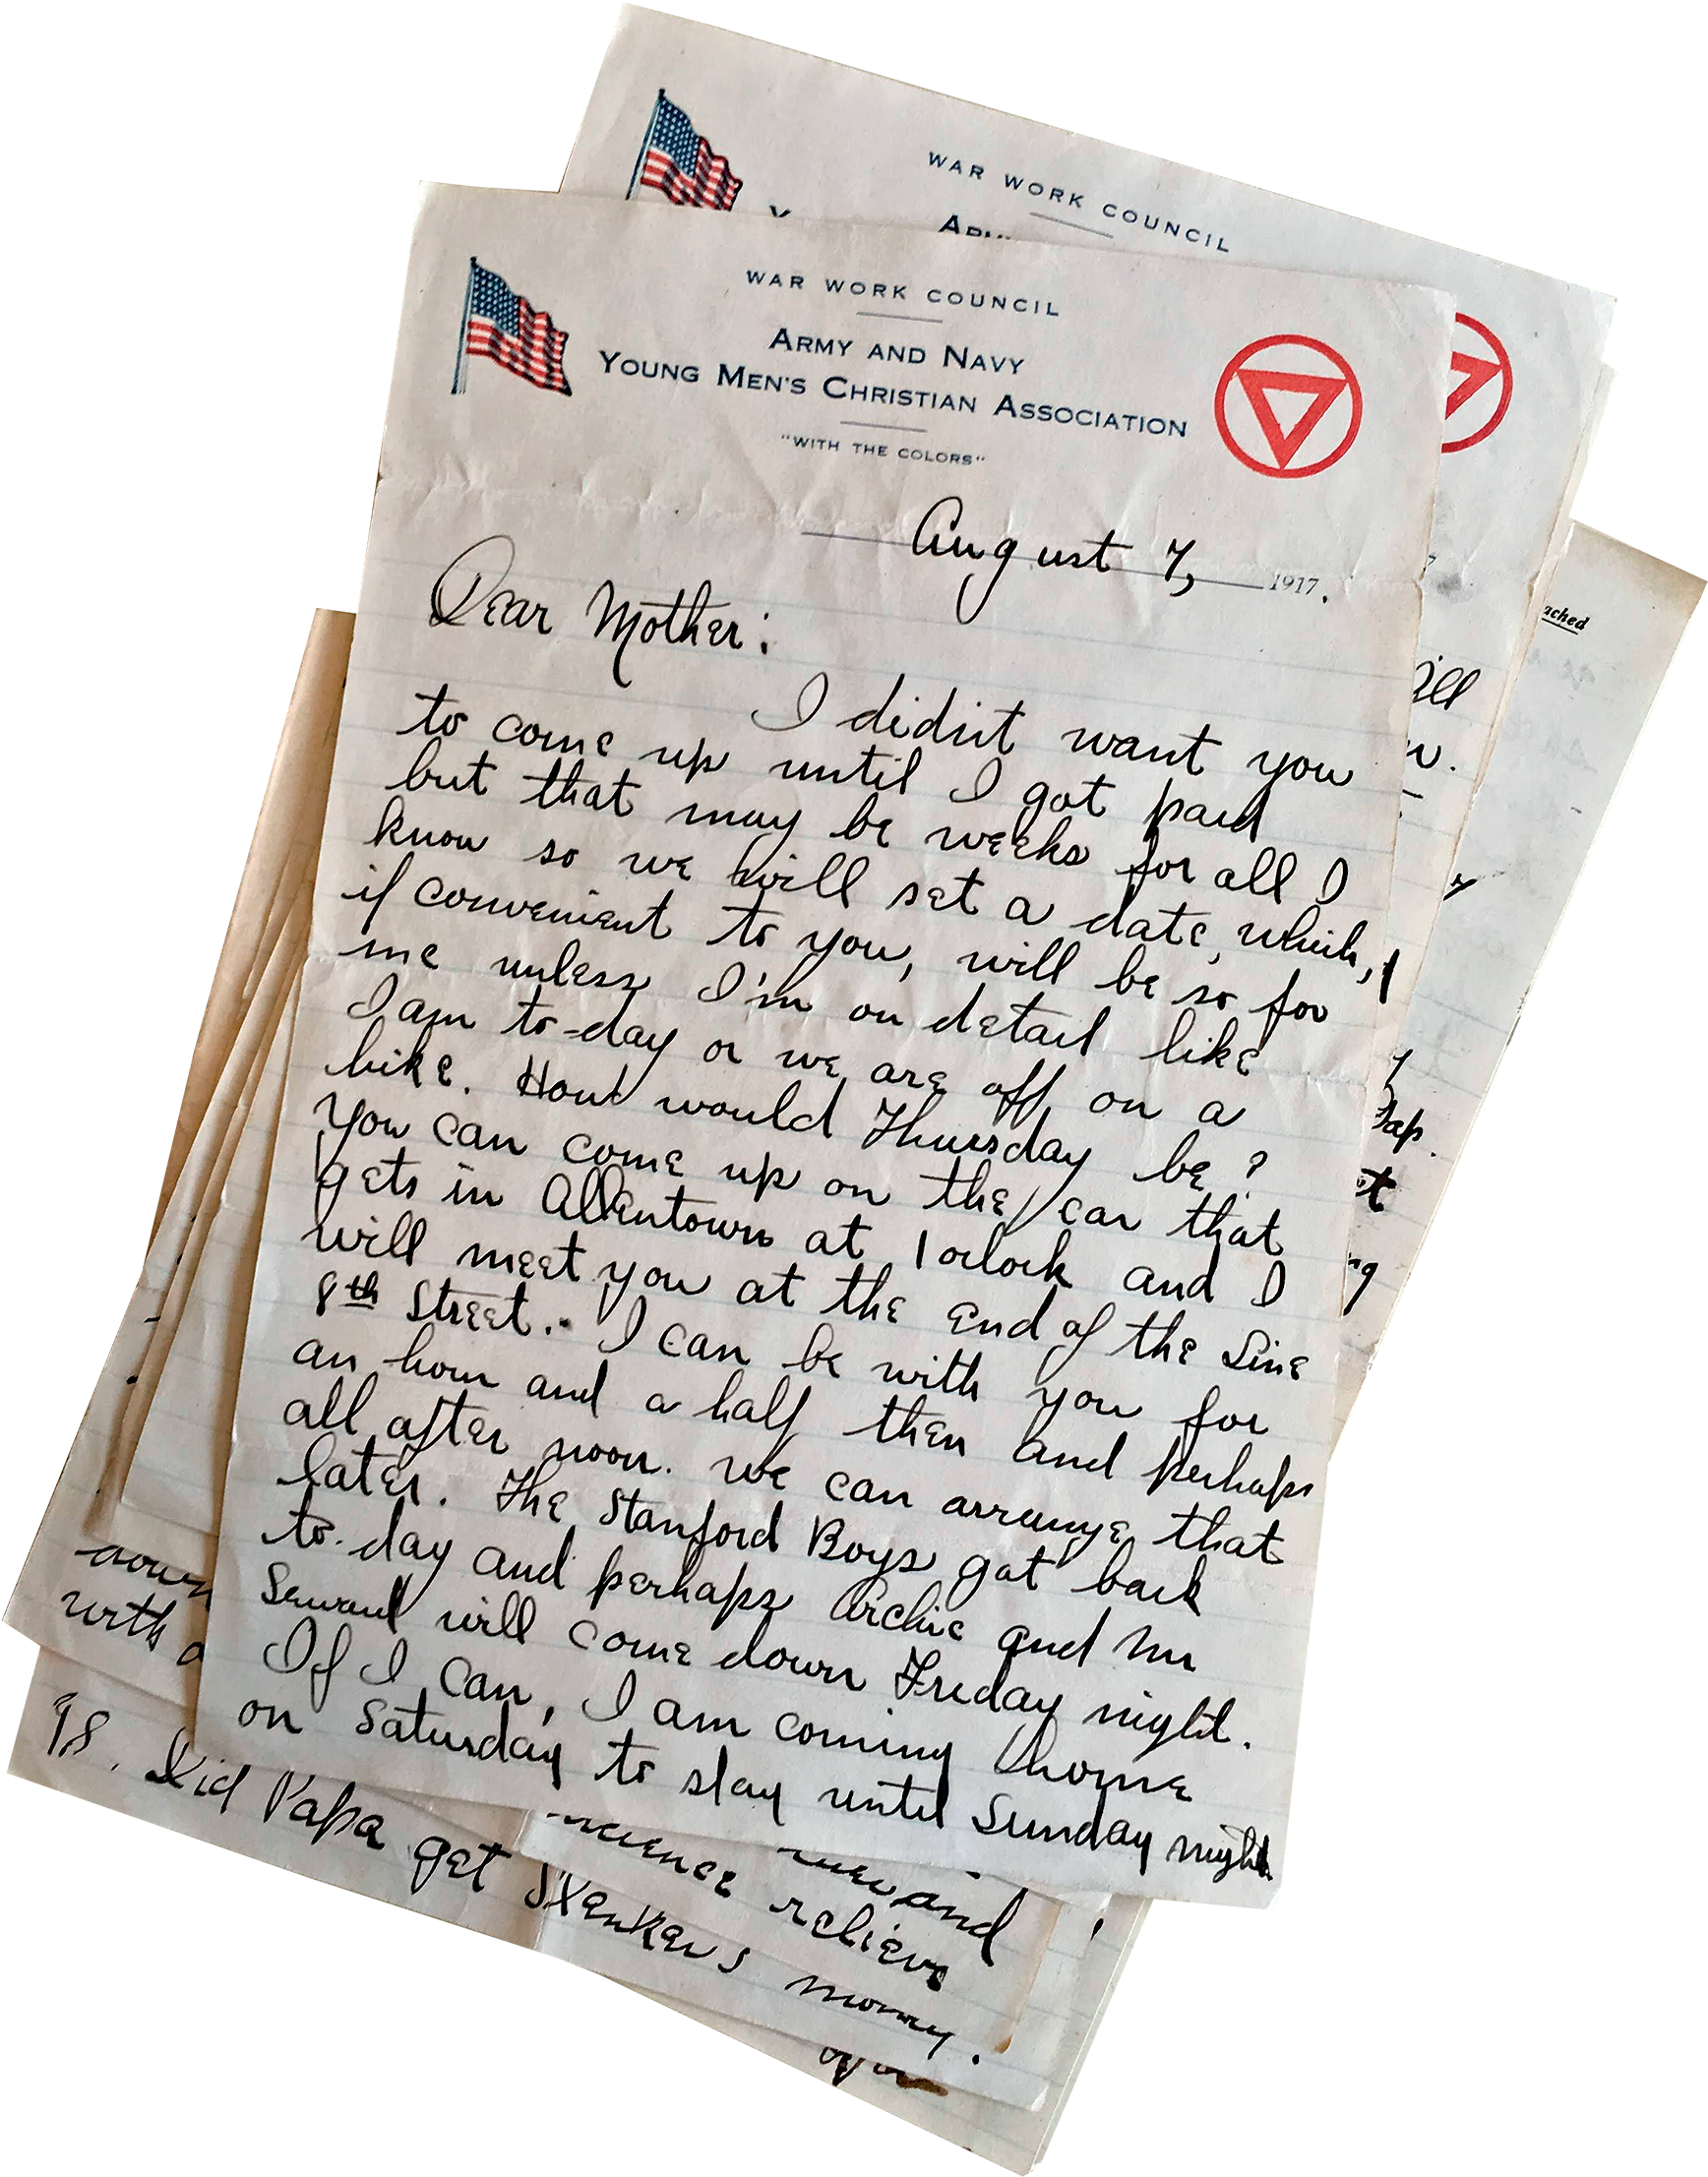 WAR WORK COUNCIL
WAR WORK COUNCIL
ARMY AND NAVY
YOUNG MEN'S CHRISTIAN ASSOCIATION
"WITH THE COLORS"
August 7, 1917.
Dear Mother:
I didn't want you
to come up until I got paid
but that may be weeks for all I
know so we will set a date, which,
if convenient to you, will be so for
me unless I'm on detail like
I am to-day or we are off on a
hike. How would Thursday be?
You can come up on the car that
gets in Allentown at 1 oclock and I
will meet you at the end of the Line
8th Street. I can be with you for
an hour and a half then and perhaps
all after noon. we can arrange that
later. The Stanford Boys got back
to-day and perhaps Archie and
will come down Friday night.
If I can, I am coming home
on Saturday to stay until Sunday night
ached
down
with a
and
relieve
98. Did Papa get money.